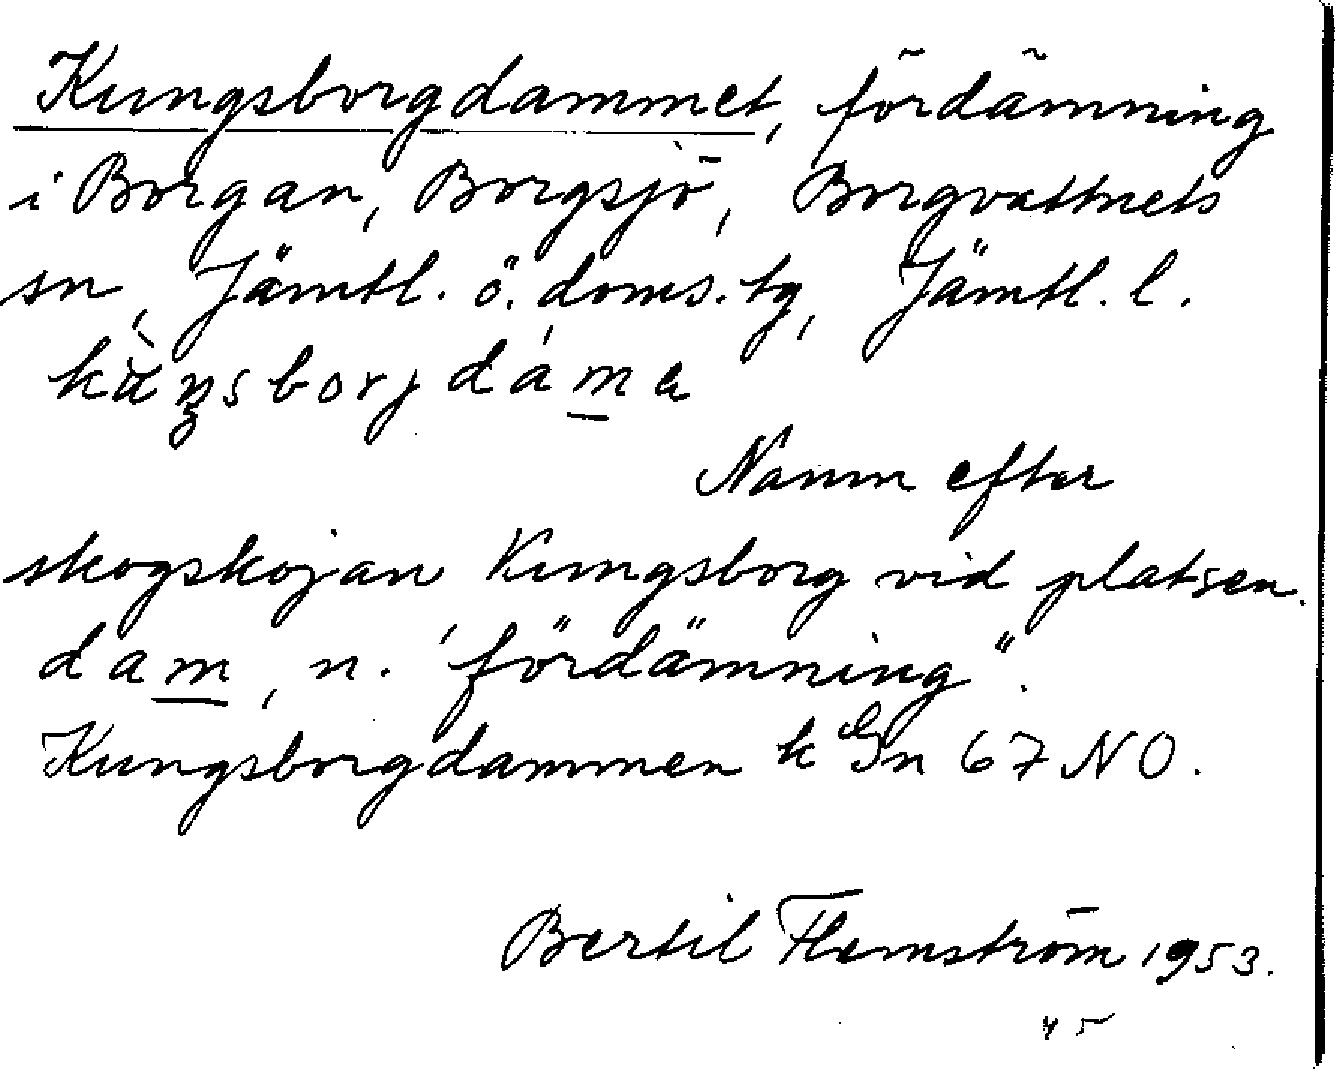 Kungsborgdammet, fördämning
i Borgan, Borgsjö, Borgvattnets
sn, Jämtl. ö. doms. tg, Jämtl. l.
Namn efter
skogskojan Kungsborg vid platsen.
dam, n. "fördämning".
Kungsborgdammen k Gn 67 NO.
Bertil Flemström 1953.